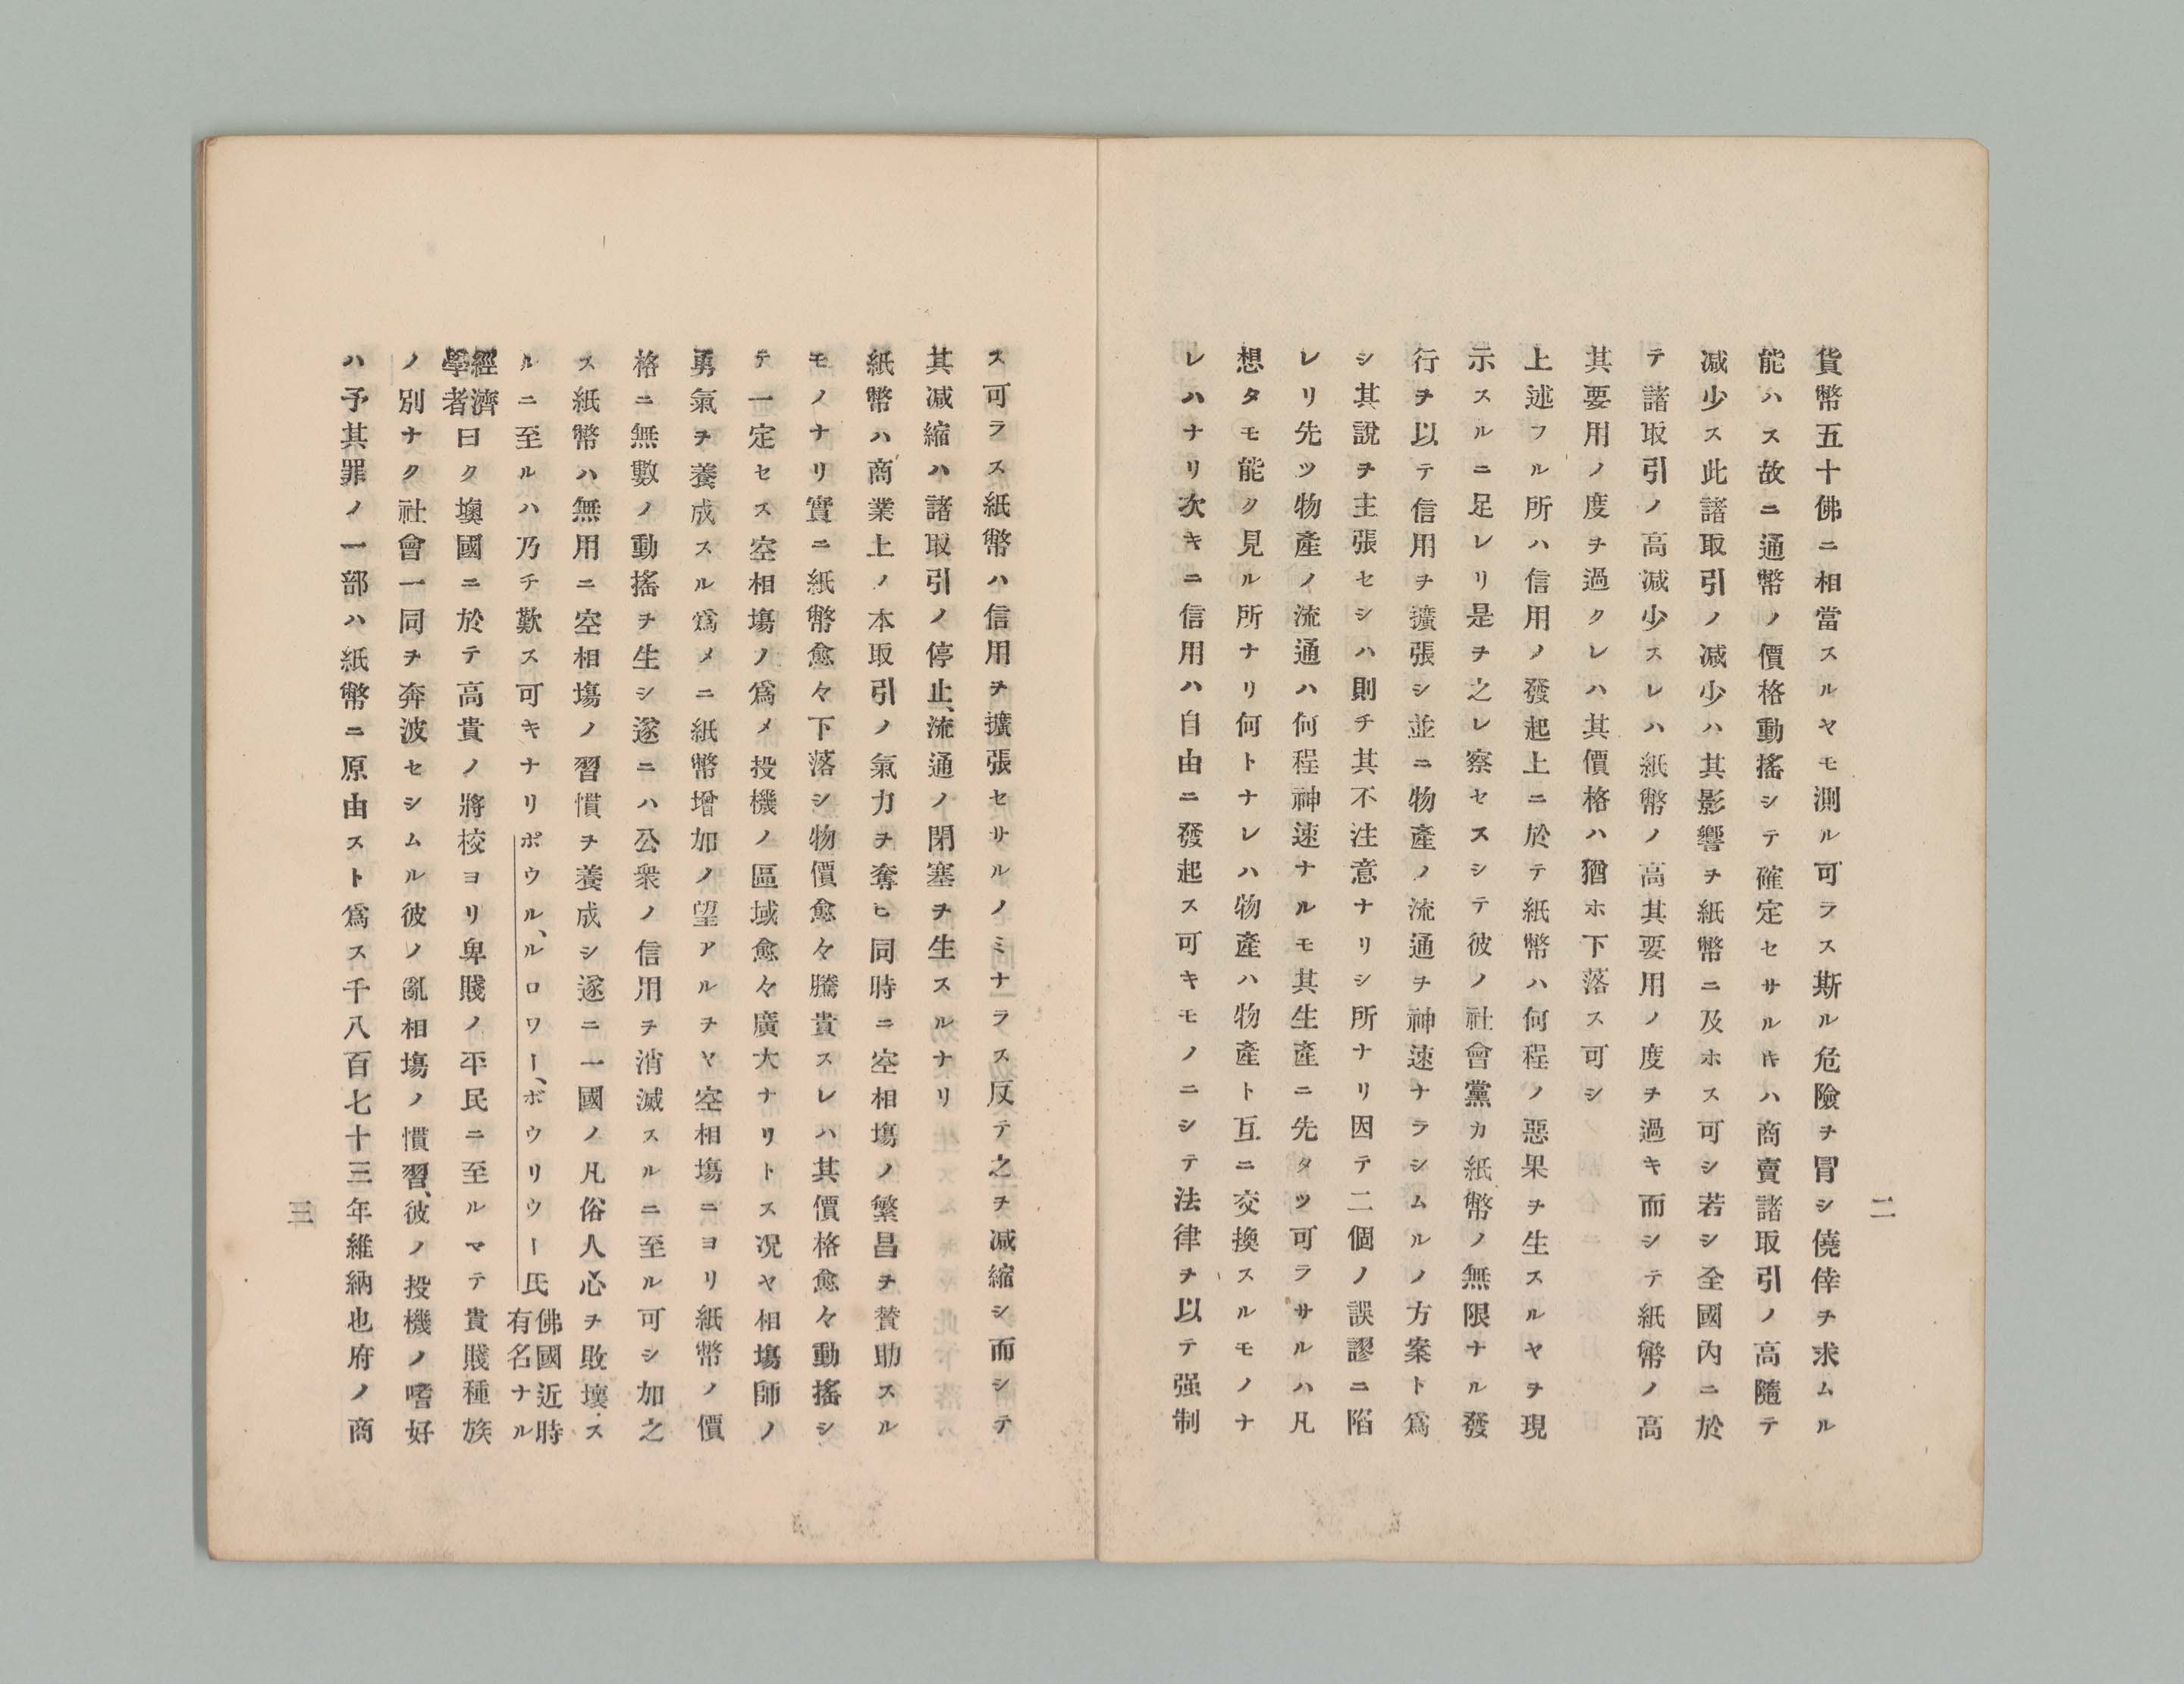 二
貨幣五十佛ニ相當スルヤモ測ル可ラス斯ル危險ヲ冒シ僥倖ヲ求ムル
能ハス故ニ通幣ノ價格動搖シテ確定セサル𪜈ハ商賣諸取引ノ高隨テ
减少ス此諸取引ノ减少ハ其影響ヲ紙幣ニ及ホス可シ若シ全國內ニ於
テ諸取引ノ高减少スレハ紙幣ノ高其要用ノ度ヲ過キ而シテ紙幣ノ高
其要用ノ度ヲ過クレハ其價格ハ猶ホ下落ス可シ
上述フル所ハ信用ノ發起上ニ於テ紙幣ハ何程ノ惡果ヲ生スルヤヲ現
示スルニ足レリ是ヲ之レ察セスシテ彼ノ社會黨カ紙幣ノ無限ナル發
行ヲ以テ信用ヲ擴張シ並ニ物產ノ流通ヲ神速ナラシムルノ方案ト爲
シ其說ヲ主張セシハ則チ其不注意ナリシ所ナリ因テ二個ノ誤謬ニ陷
レリ先ツ物產ノ流通ハ何程神速ナルモ其生產ニ先タツ可ラサルハ凡
想タモ能ク見ル所ナリ何トナレハ物產ハ物產ト互ニ交換スルモノナ
レハナリ次キニ信用ハ自由ニ發起ス可キモノニシテ法律ヲ以テ强制
ス可ラス紙幣ハ信用ヲ擴張セサルノミナラス反テ之ヲ减縮シ而シテ
其减縮ハ諸取引ノ停止、流通ノ閉塞ヲ生スルナリ
紙幣ハ商業上ノ本取引ノ氣力ヲ奪ヒ同時ニ空相塲ノ繁昌ヲ賛助スル
モノナリ實ニ紙幣愈々下落シ物價愈々騰貴スレハ其價格愈々動搖シ
テ一定セス空相塲ノ爲メ投機ノ區域愈々廣大ナリトス况ヤ相塲師ノ
勇氣ヲ養成スル爲メニ紙幣增加ノ望アルヲヤ空相塲ニヨリ紙幣ノ價
格ニ無數ノ動搖ヲ生シ遂ニハ公衆ノ信用ヲ消滅スルニ至ル可シ加之
ス紙幣ハ無用ニ空相塲ノ習慣ヲ養成シ遂ニ一國ノ凡俗人心ヲ敗壞ス
ルニ至ルハ乃チ歎ス可キナリポウル、ルロワー、ボウリウー氏佛國近時有名ナル
經濟學者曰ク墺國ニ於テ高貴ノ將校ヨリ卑賤ノ平民ニ至ルマテ貴賤種族
ノ別ナク社會一同ヲ奔波セシムル彼ノ亂相塲ノ慣習、彼ノ投機ノ嗜好
ハ予其罪ノ一部ハ紙幣ニ原由スト爲ス千八百七十三年維納也府ノ商
三